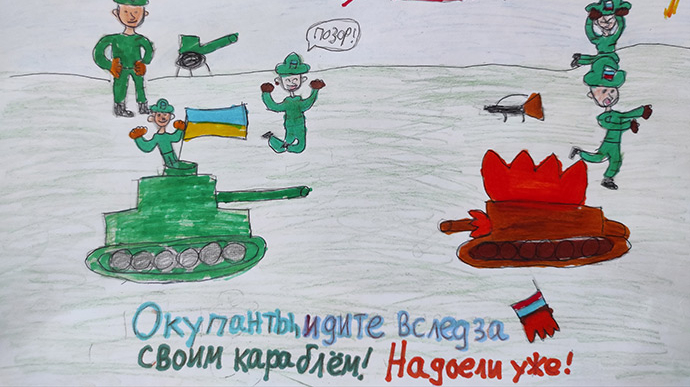 ПОЗОР!
Окупанты, идите вслед за
своим караблём! Надоели уже!